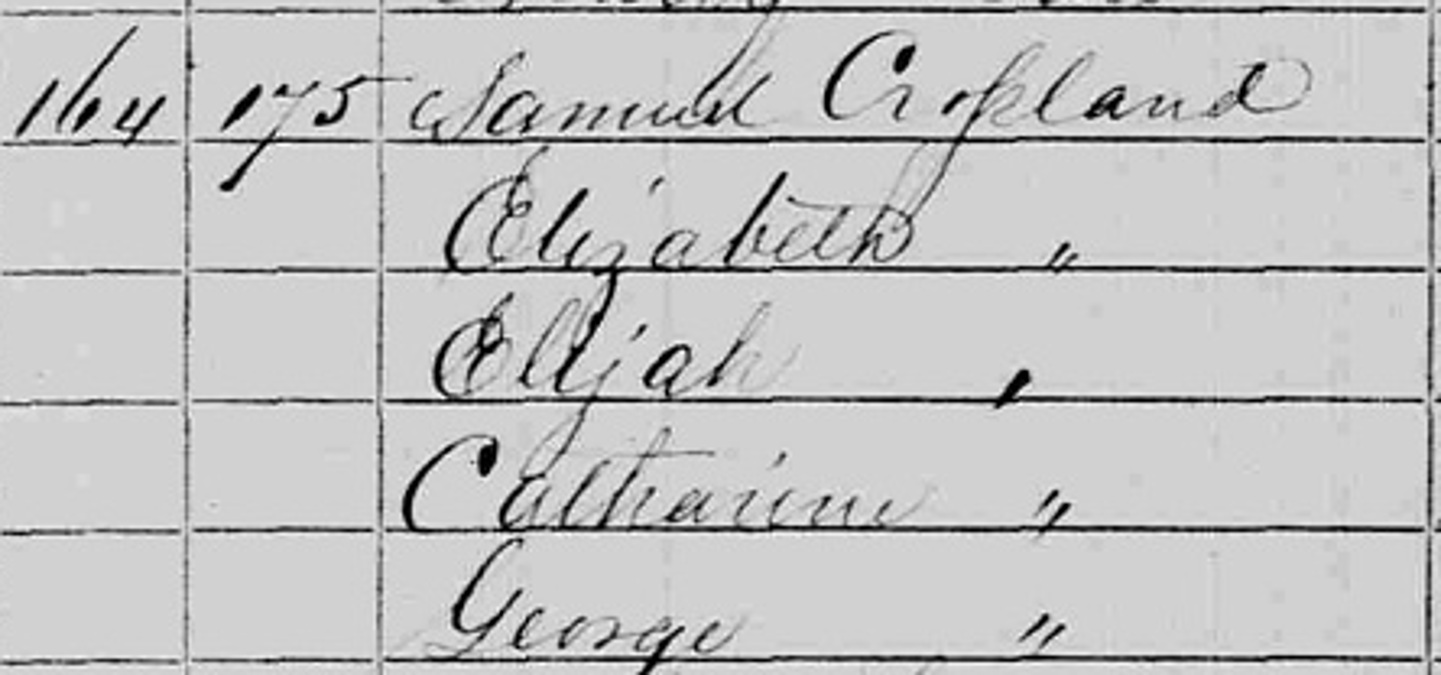 164 175 Samuel Crossland
Elizabeth "
Elijah "
Catharine "
George "